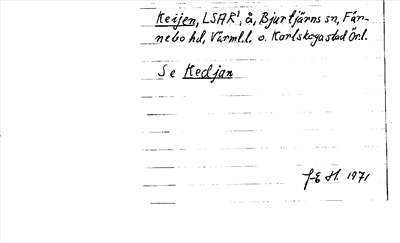 Keijen, LSAR¹, å, Bjurtjärns sn, Fär-
nebo hd, Värml.l. o. Karlskoga stad Örl.
Se Kedjan
1971